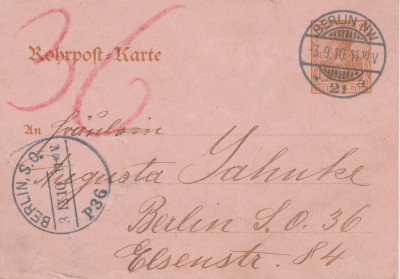 BERLIN NW
-3.9.10.11-12V
* 21 a
Rohrpost-Karte
36
An Fräulein
Augusta Jahnke
Berlin S.O. 36
Elsenstr. 84
BERLIN, S.O.
P36